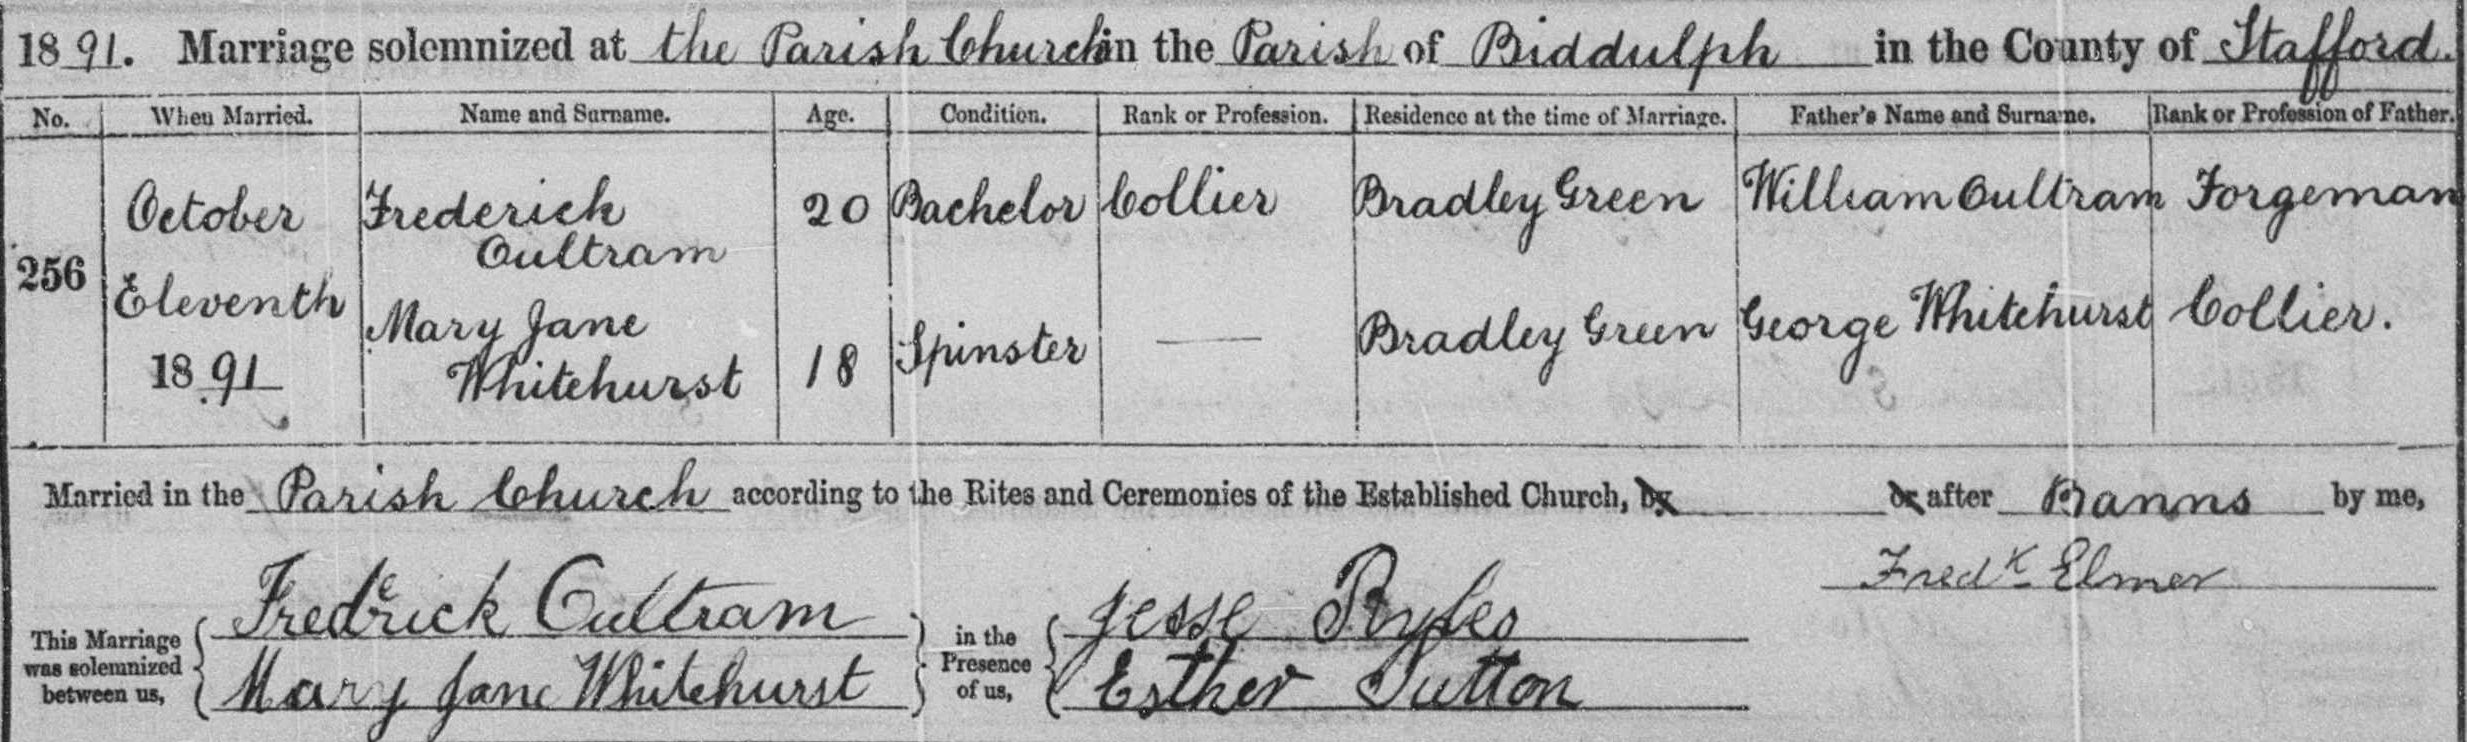 1891. Marriage solemnized at the Parish Church in the Parish of Biddulph in the County of Stafford.
No. When Married. Name and Surname. Age. Condition. Rank or Profession. Residence at the time of Marriage. Father's Name and Surname. Rank or Profession of Father.
256 October Eleventh 1891 Frederick Oultram 20 Bachelor Collier Bradley Green William Oultram Forgeman
Mary Jane Whitehurst 18 Spinster — Bradley Green George Whitehurst Collier.
Married in the Parish Church according to the Rites and Ceremonies of the Established Church, by or after Banns by me,
Fredk Elmer
This Marriage was solemnized between us, Frederick Oultram in the Presence of us, Jesse Ryles
Mary Jane Whitehurst Esther Sutton